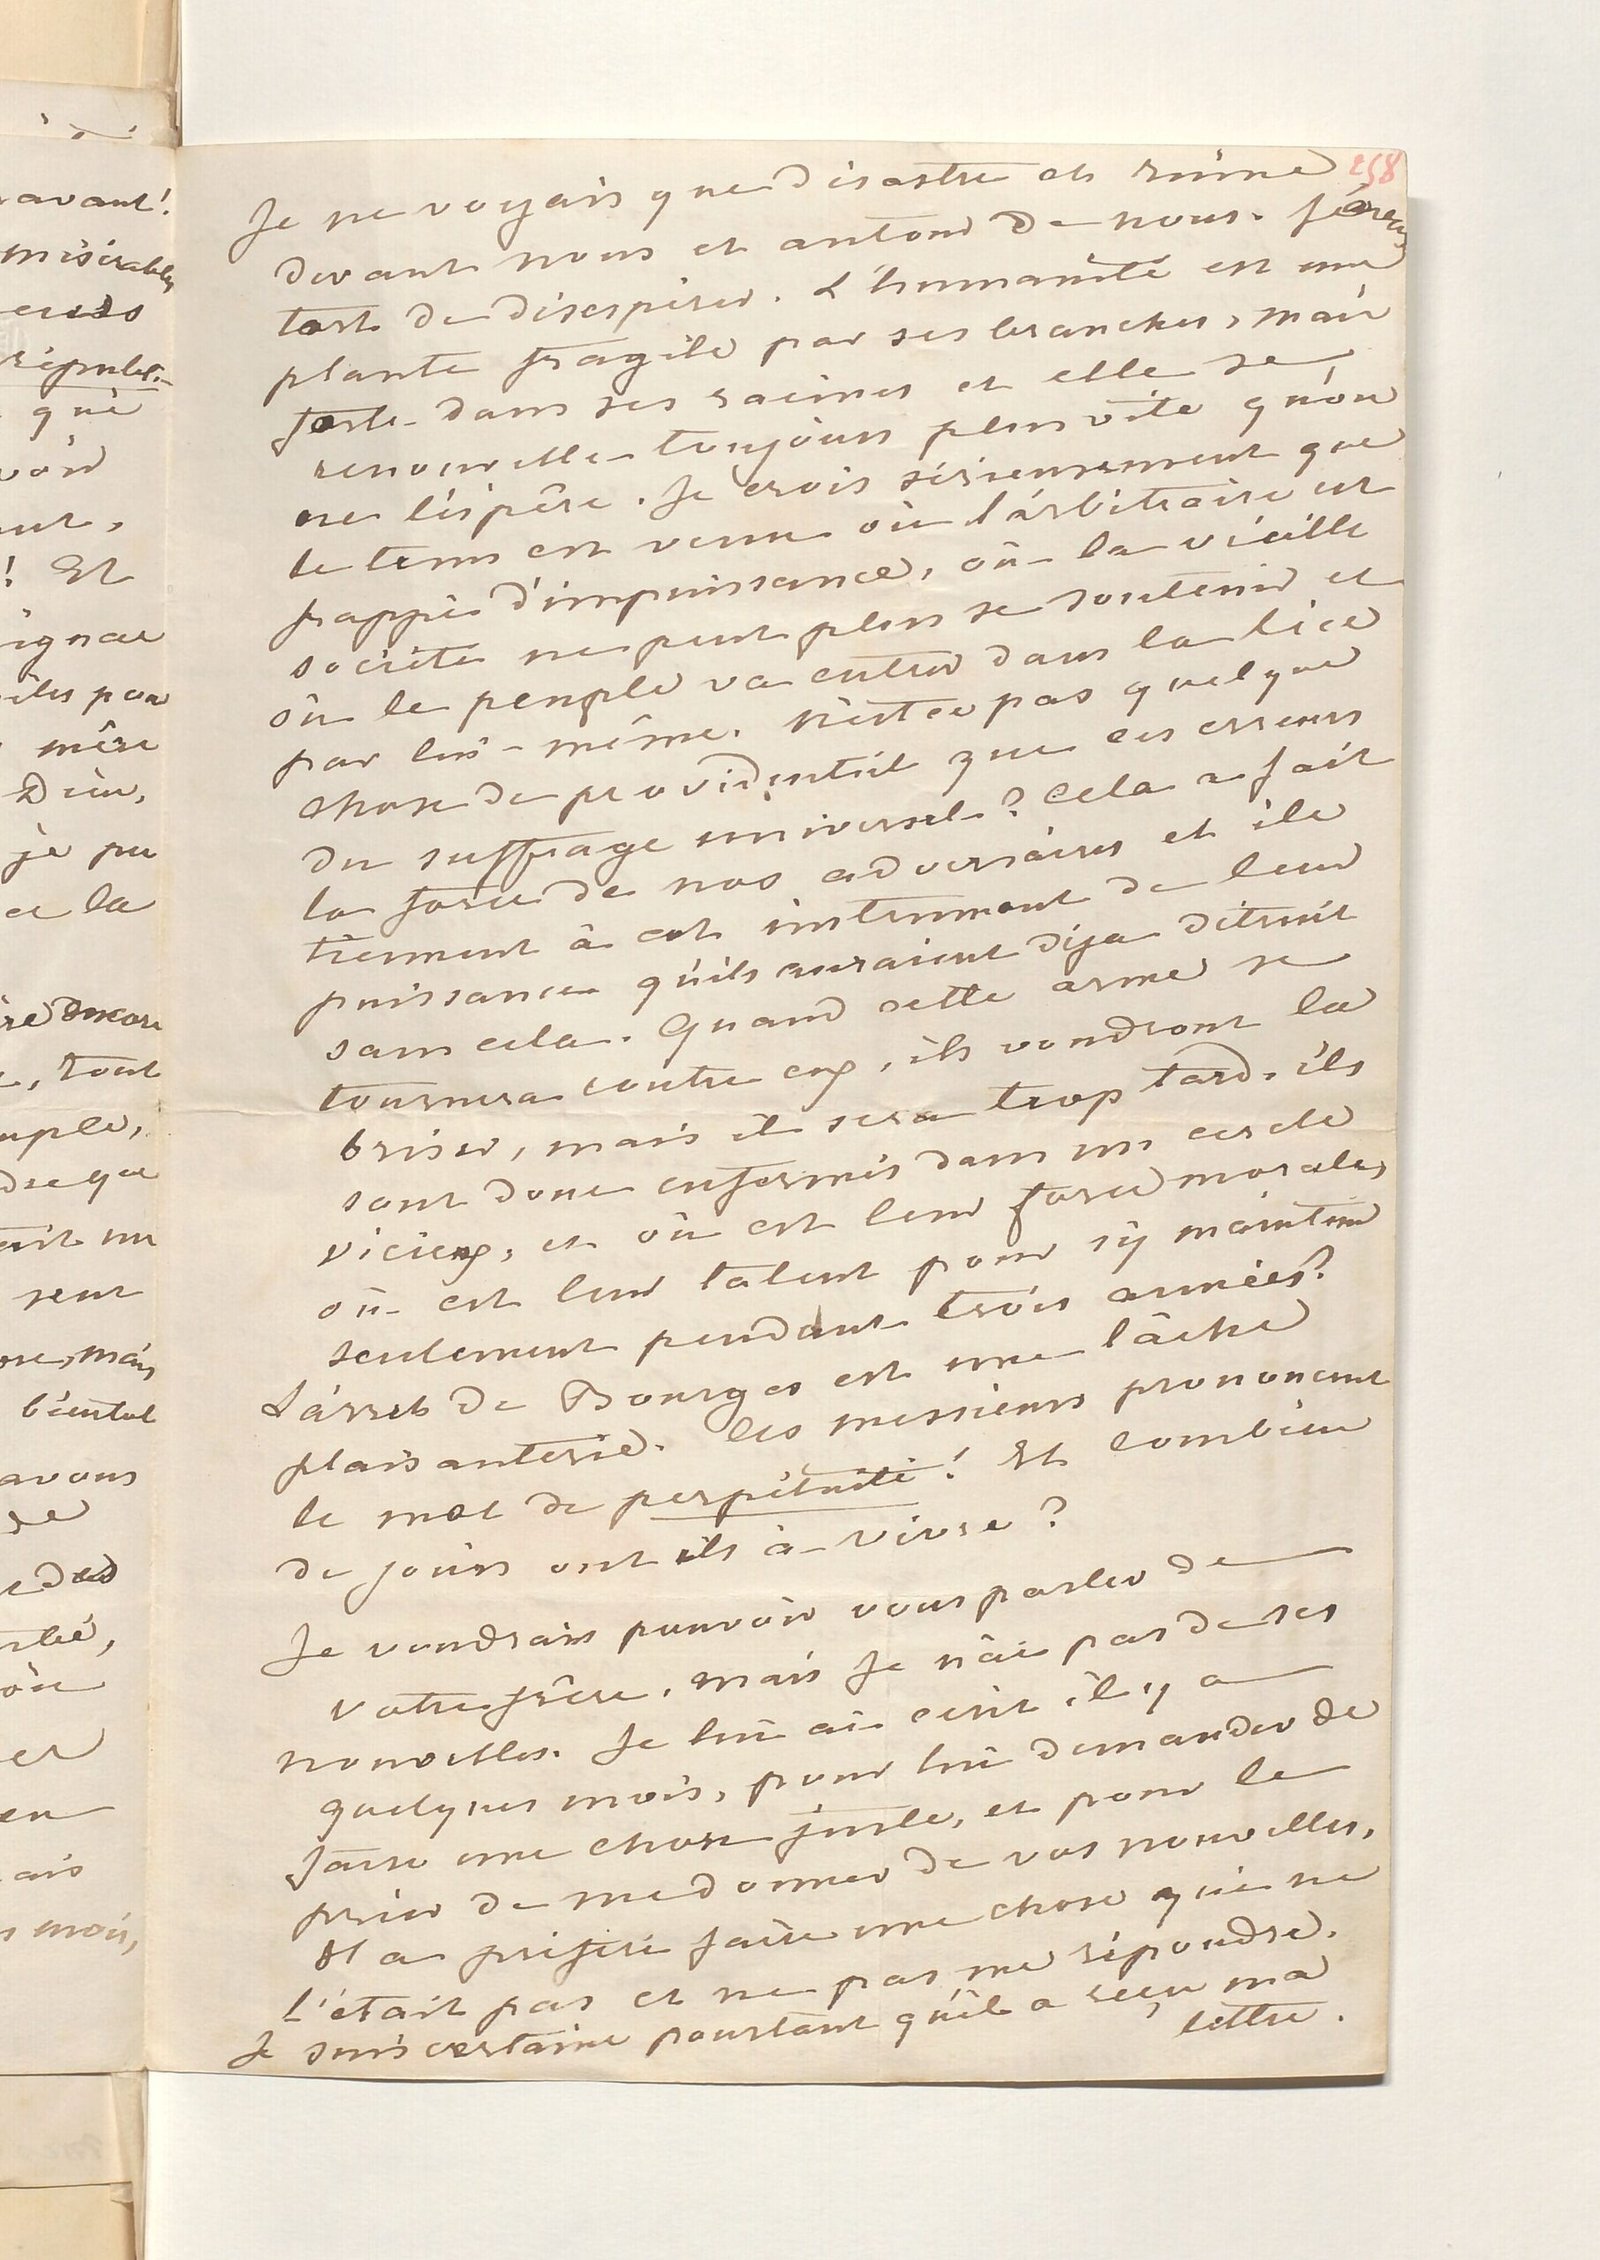 258
Je ne voyais que désastre et ruine
devant nous et autour de nous. J'avais
tort de désespérer. L'humanité est une
plante fragile par ses branches, mais
forte dans ses racines et elle se
renouvelle toujours plus vite qu'on
ne l'espère. Je crois sérieusement que
le tems est venu où l'arbitraire est
frappé d'impuissance, où la vieille
société ne peut plus se soutenir et
où le peuple va entrer dans la lice
par lui-même. N'est ce pas quelque
chose de providentiel que ces erreurs
du suffrage universel? Cela a fait
la force de nos adversaires et ils
tiennent à cet instrument de leur
puissance qu'ils auraient déja détruit
sans cela. Quand cette arme se
tournera contre eux, ils voudront la
briser, mais il sera trop tard. ils
sont donc enfermés dans un cercle
vicieux, et où est leur force morale,
où est leur talent pour s'y maintenir
seulement pendant trois années?
L'arrêt de Bourges est une lâche
plaisanterie. Ces messieurs prononcent
le mot de perpétuité! Et combien
de jours ont ils à vivre?
Je voudrais pouvoir vous parler de
votre frère, mais je n'ai pas de ses
nouvelles. Je lui ai écrit il y a
quelques mois, pour lui demander de
faire une chose juste, et pour le
prier de me donner de vos nouvelles.
Il a préféré faire une chose qui ne
l'était pas et ne pas me répondre.
Je suis certaine pourtant qu'il a reçu ma
lettre.